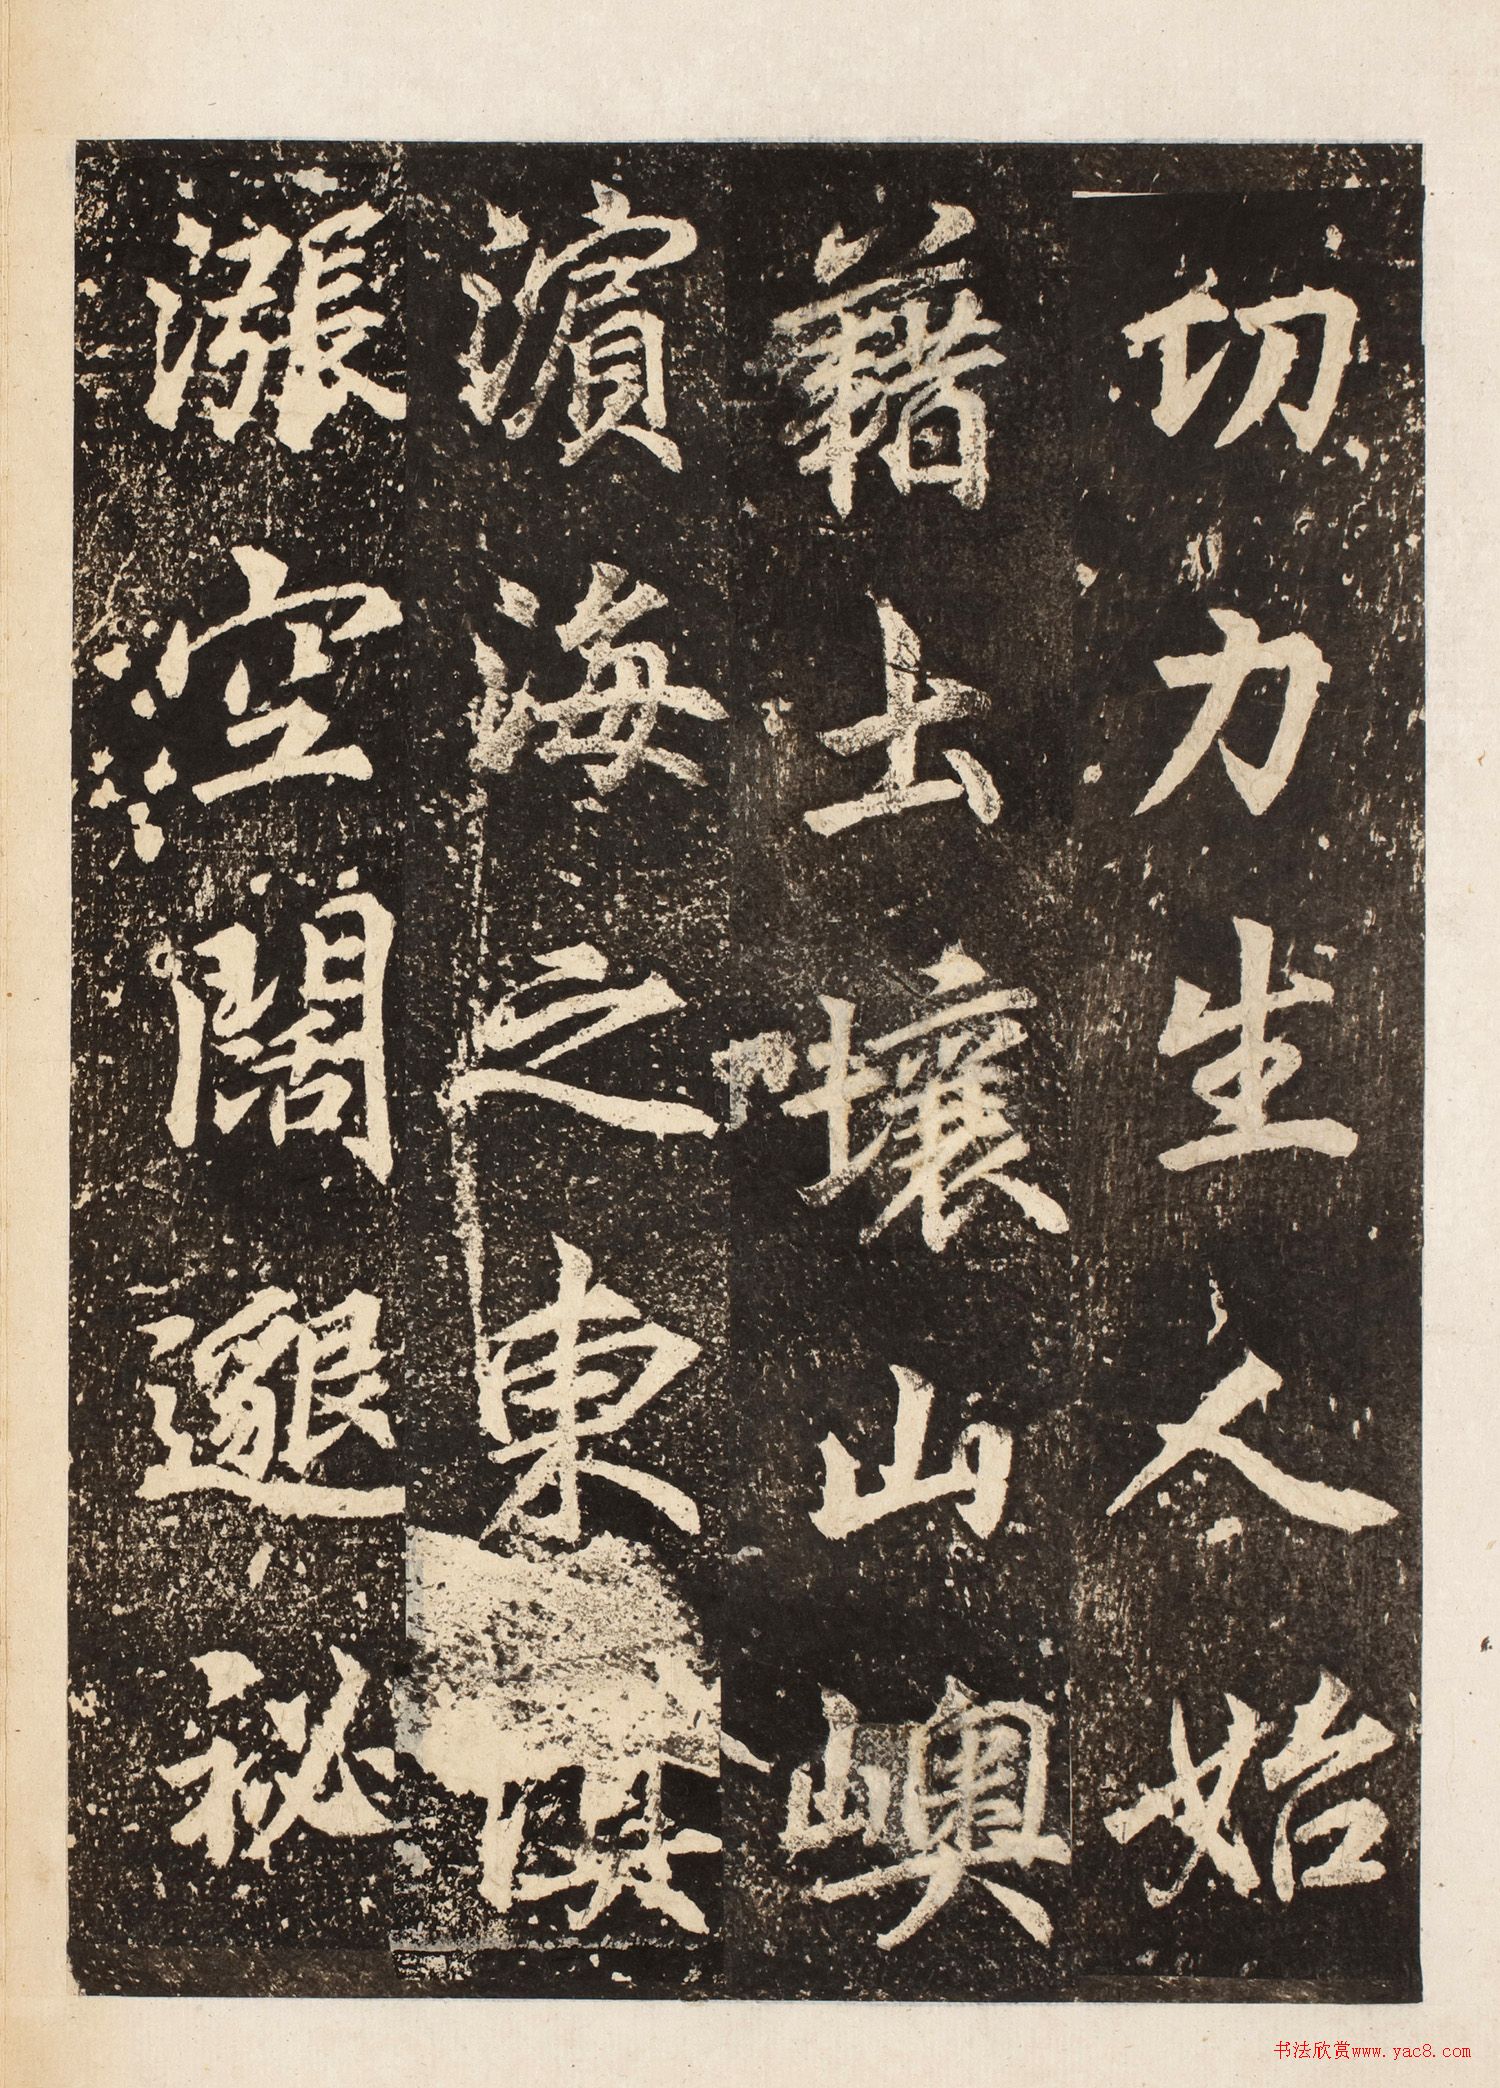 功力生人始
藉土壤山嶼
濱海之東
漲空闊邈秘
书法欣赏www.yac8.com